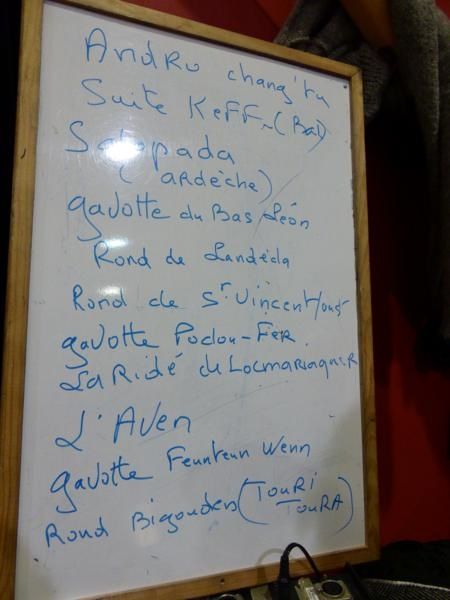 Andro chang'tu
Suite KeFF~(Bal)
Sa pada
(ARDèche)
gavotte du Bas Léon
Rond de Landéda
Rond de St Vincent/oust
gavotte Podou-Fer
La Ridé de Locmariaquer
L'Aven
gavotte Feunteun Wenn
Rond Bigouden (TouRi
TouRA)